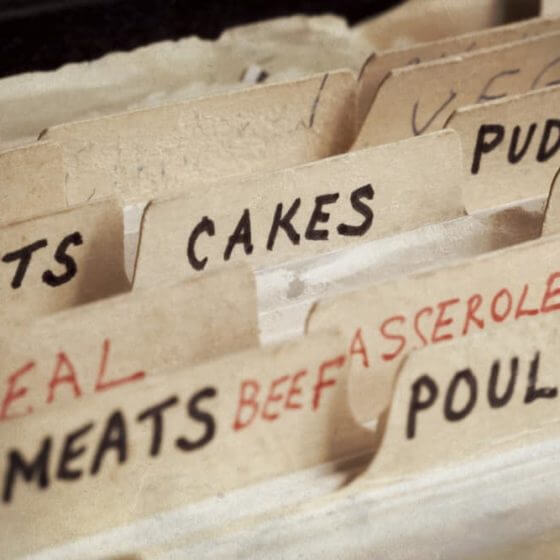 VEG
PUD
CAKES
TS
ASSEROLE
EAL
MEATS BEEF
POUL